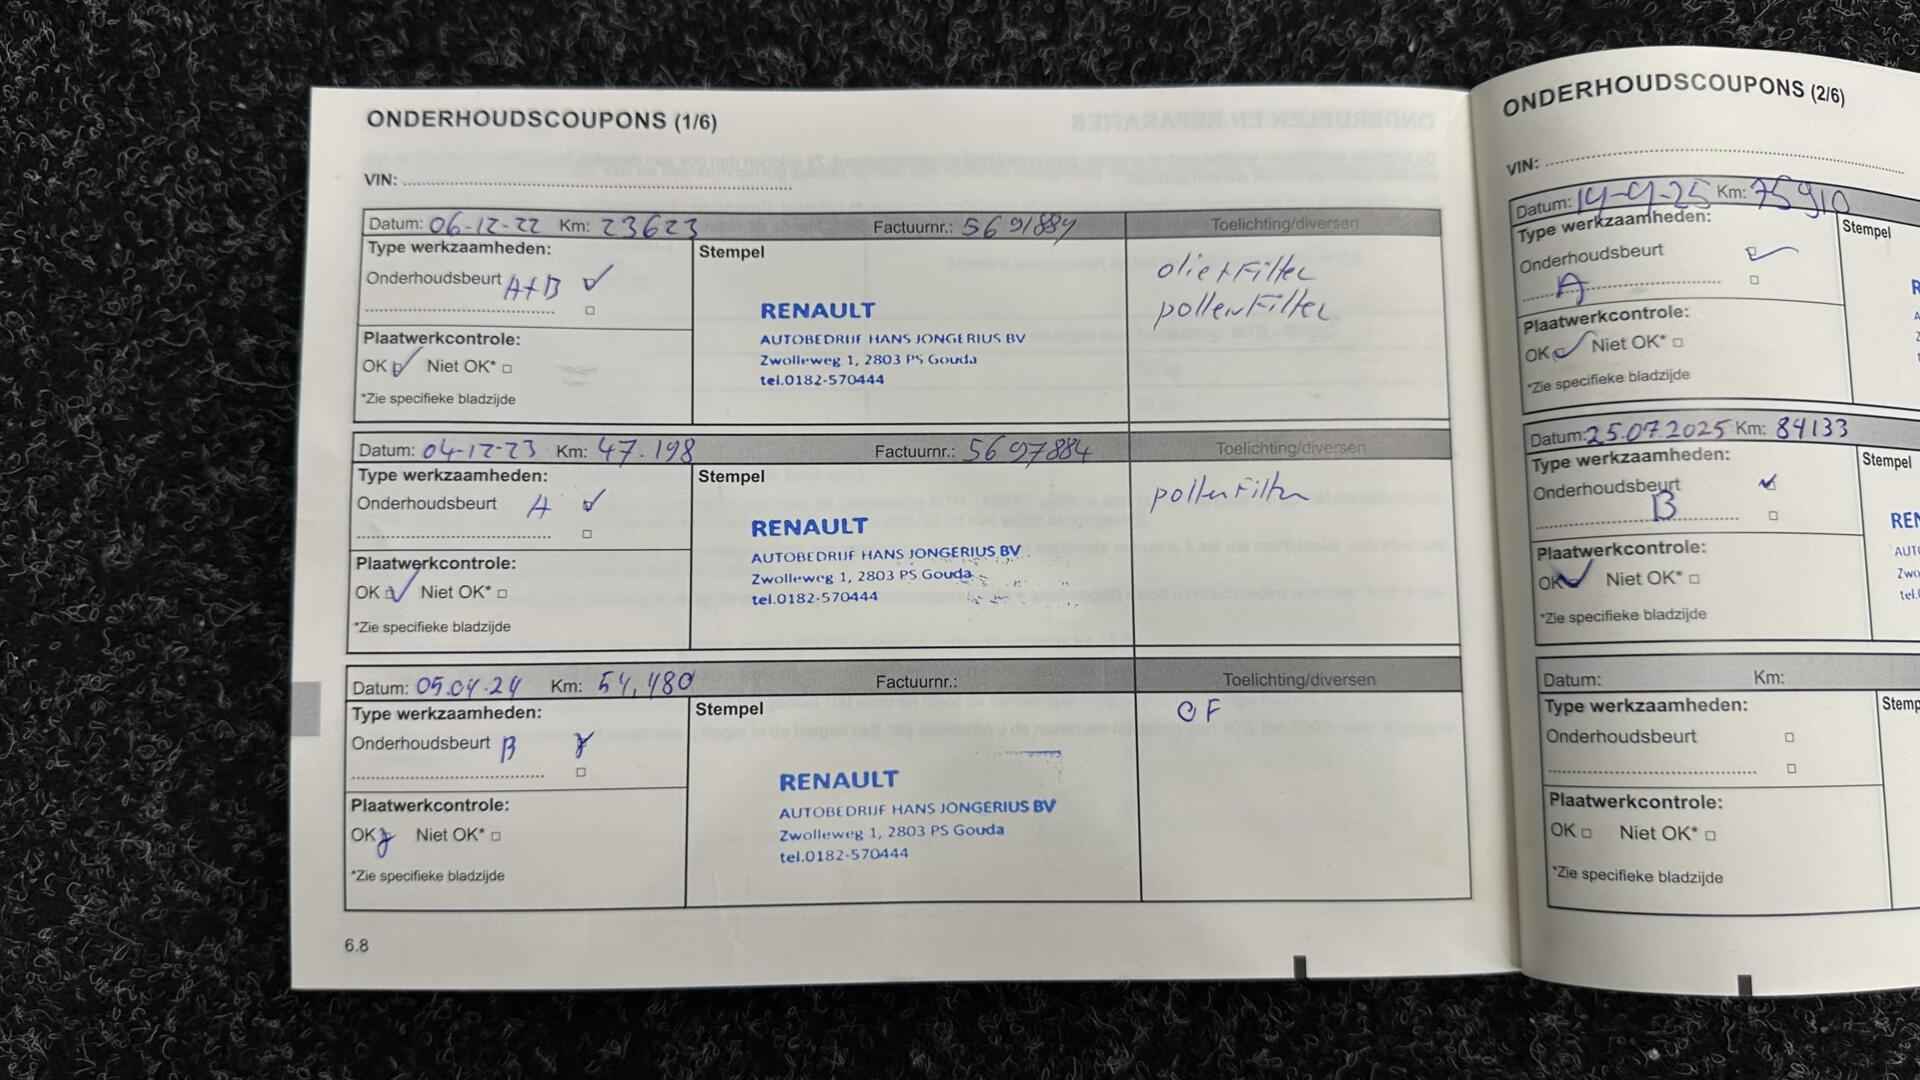 ONDERHOUDSCOUPONS (1/6)
VIN:
Datum: 06-12-22 Km: 23623 Factuurnr.: 5691884 Toelichting/diversen
Type werkzaamheden:
Stempel
Onderhoudsbeurt A+B
olie+Filter
pollenFilter
RENAULT
AUTOBEDRIJF HANS JONGERIUS BV
Zwolleweg 1, 2803 PS Gouda
tel.0182-570444
Plaatwerkcontrole:
OK Niet OK*
*Zie specifieke bladzijde
Datum: 04-12-23 Km: 47.198 Factuurnr.: 5697884 Toelichting/diversen
Type werkzaamheden:
Stempel
Onderhoudsbeurt A
pollenFilter
RENAULT
AUTOBEDRIJF HANS JONGERIUS BV
Zwolleweg 1, 2803 PS Gouda
tel.0182-570444
Plaatwerkcontrole:
OK Niet OK*
*Zie specifieke bladzijde
Datum: 05.04.24 Km: 54,480 Factuurnr.: Toelichting/diversen
Type werkzaamheden:
Stempel
OF
Onderhoudsbeurt B
RENAULT
AUTOBEDRIJF HANS JONGERIUS BV
Zwolleweg 1, 2803 PS Gouda
tel.0182-570444
Plaatwerkcontrole:
OK Niet OK*
*Zie specifieke bladzijde
6.8
ONDERHOUDSCOUPONS (2/6)
VIN:
Datum: Km: 75910
Type werkzaamheden:
Stempel
Onderhoudsbeurt
A
Plaatwerkcontrole:
OK Niet OK*
*Zie specifieke bladzijde
Datum: 25.07.2025 Km: 84133
Type werkzaamheden:
Stempel
Onderhoudsbeurt
B
Plaatwerkcontrole:
OK Niet OK*
*Zie specifieke bladzijde
Datum: Km:
Type werkzaamheden:
Stemp
Onderhoudsbeurt
Plaatwerkcontrole:
OK Niet OK*
*Zie specifieke bladzijde